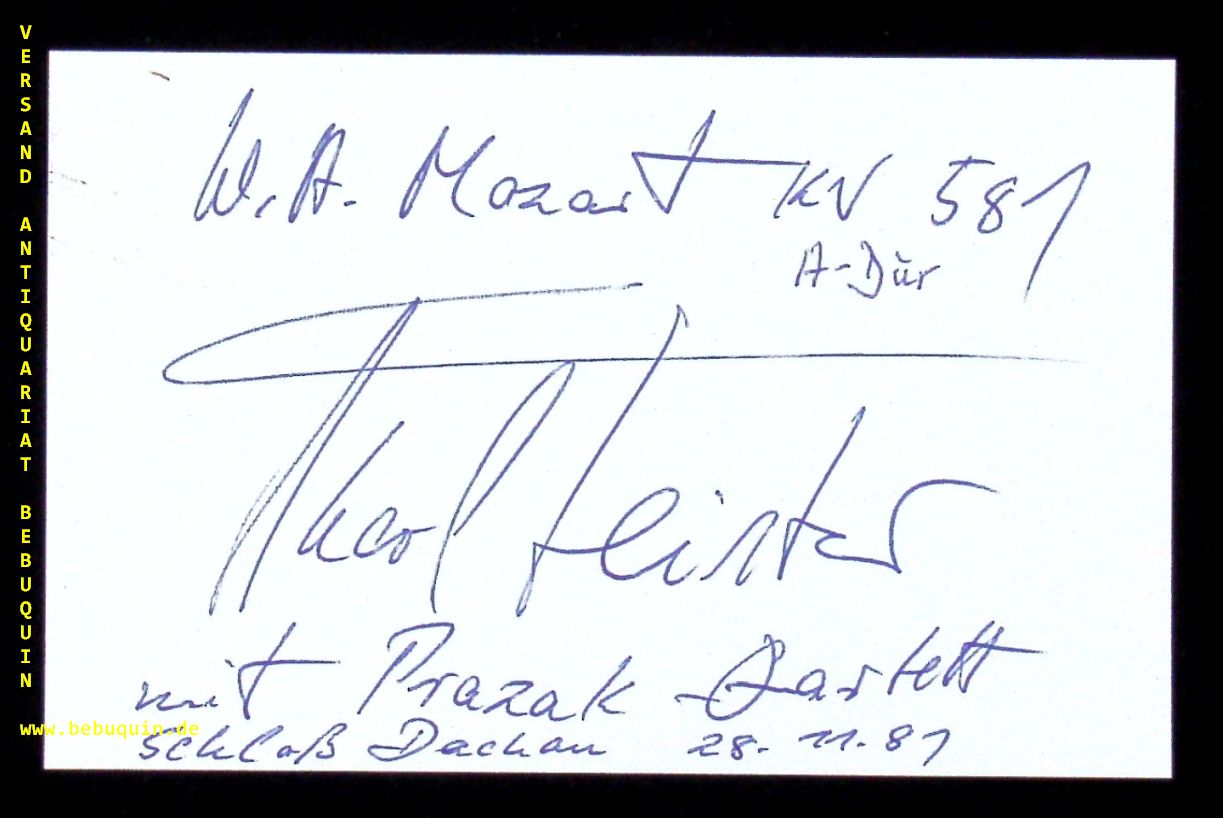 VERSAND ANTIQUARIAT BEBUQUIN
W. A. Mozart KV 581
A-Dur
Karl Leister
mit Prazak Quartett
www.bebuquin.de
Schloß Dachau 28. 11. 81